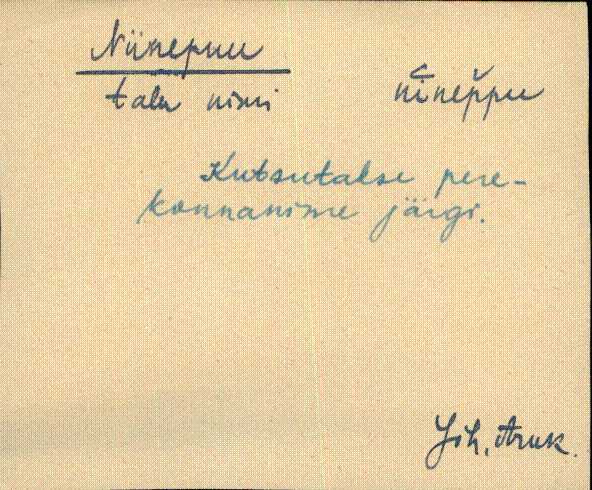 Niinepuu
talu nimi
nīnep̆pu
Kutsutakse pere-
konnanime järgi.
Joh. Aruk.